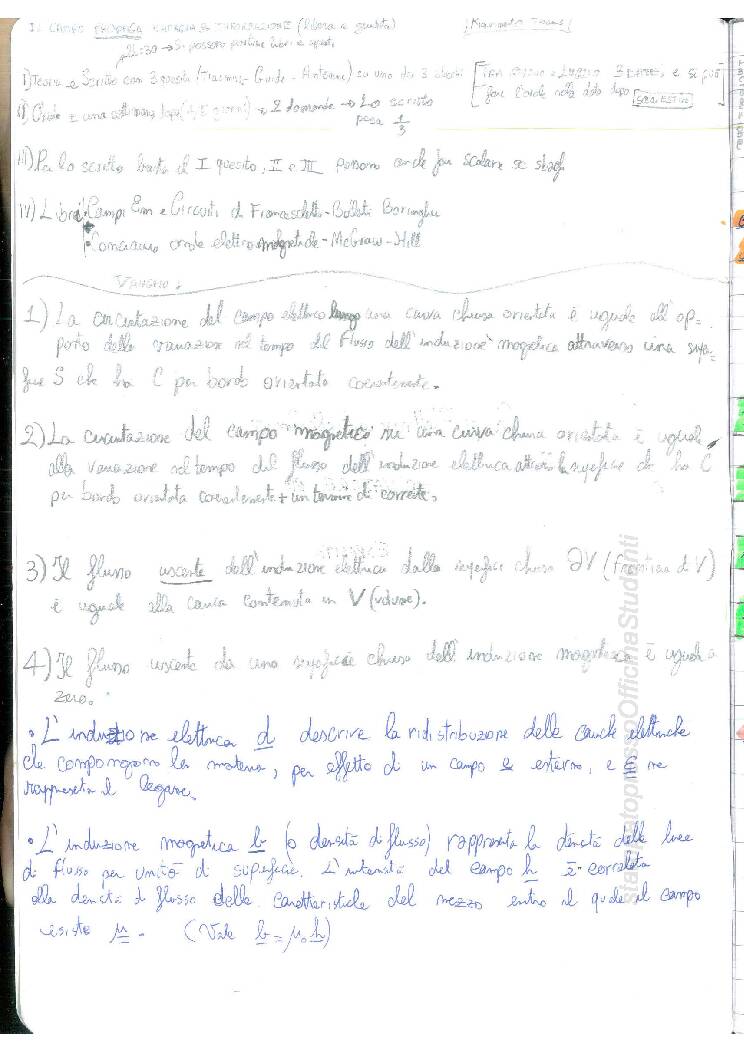 IL CAMPO PROPAGA ENERGIA E INFORMAZIONE (libera e guidata)
14:30 → Si possono portare libri e appunti
I) Teoria e Scritto con 3 quesiti (Trasmiss - Guide - Antenne) su uno dei 3
II) Orale 2 domande → Lo scritto
pesa 1/3
III) Per lo scritto basta il I quesito, II e III possono anche far scalare se sbagli
IV) Libri: Campi Em e Circuiti di Franceschetti - Bellotti Borunghu
Conciauro onde elettromagnetiche - McGraw-Hill
1) La circuitazione del campo elettrico lungo una curva chiusa orientata è uguale all'op=
posto della variazione nel tempo del flusso dell'induzione magnetica attraverso una supe=
ficie S che ha C per bordo orientato coerentemente.
2) La circuitazione del campo magnetico su una curva chiusa orientata è uguale
alla variazione nel tempo del flusso dell'induzione elettrica attrav. la superficie che ha C
per bordo orientata coerentemente + un termine di corrente.
3) Il flusso uscente dell'induzione elettrica dalla superficie chiusa ∂V (frontiera di V)
è uguale alla carica contenuta in V (volume).
4) Il flusso uscente da una superficie chiusa dell'induzione magnetica è uguale a
zero.
• L'induzione elettrica d descrive la ridistribuzione delle cariche elettriche
che compongono la materia, per effetto di un campo e esterno, e ε ne
rappresenta il legame.
• L'induzione magnetica b (o densità di flusso) rappresenta la densità delle linee
di flusso per unità di superficie. L'intensità del campo h è correlata
alla densità di flusso delle caratteristiche del mezzo entro il quale il campo
esiste μ. (Vale b = μ₀ h)
stampatopressoOfficinaStudenti